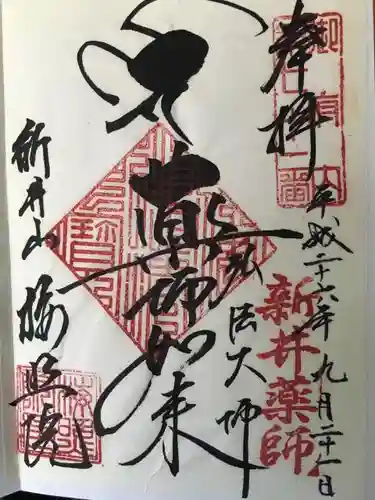 奉拝
平成二十六年九月二十一日
新井薬師
弘法大師
薬師如来
新井山
梅照院